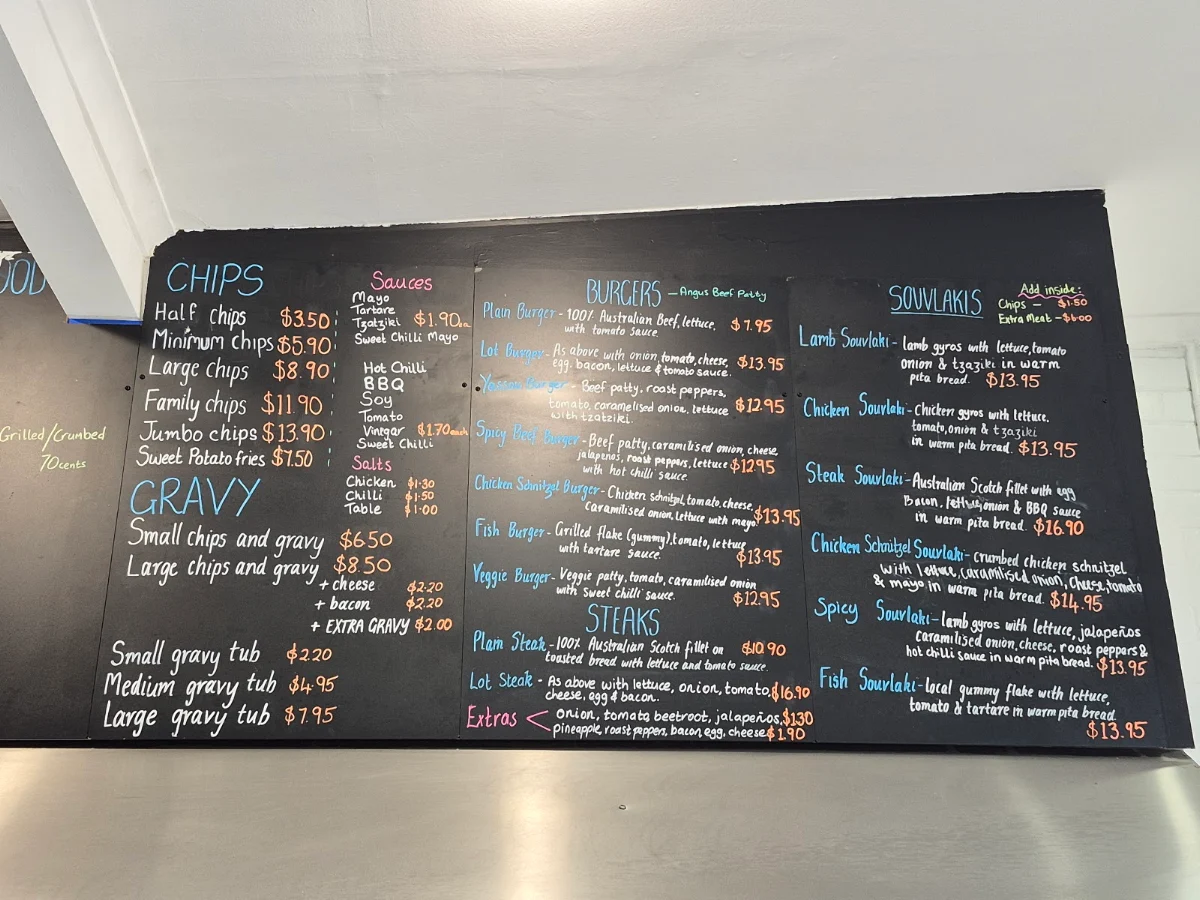 OOD
Grilled/Crumbed
70cents
CHIPS
Half chips $3.50
Minimum chips $5.90
Large chips $8.90
Family chips $11.90
Jumbo chips $13.90
Sweet Potato fries $7.50
GRAVY
Small chips and gravy $6.50
Large chips and gravy $8.50
+ cheese $2.20
+ bacon $2.20
+ EXTRA GRAVY $2.00
Small gravy tub $2.20
Medium gravy tub $4.95
Large gravy tub $7.95
Sauces
Mayo
Tartare
Tzatziki $1.90ea
Sweet Chilli Mayo
Hot Chilli
BBQ
Soy
Tomato
Vinegar $1.70each
Sweet Chilli
Salts
Chicken $1.30
Chilli $1.50
Table $1.00
BURGERS - Angus Beef Patty
Plain Burger - 100% Australian Beef, lettuce, $7.95
with tomato sauce.
Lot Burger - As above with onion, tomato, cheese, $13.95
egg, bacon, lettuce & tomato sauce.
Burger - Beef patty, roast peppers,
tomato, caramelised onion, lettuce $12.95
with tzatziki.
Spicy Beef Burger - Beef patty, caramilised onion, cheese
jalapeños, roast peppers, lettuce $12.95
with hot chilli sauce.
Chicken Schnitzel Burger - Chicken schnitzel, tomato, cheese,
Caramilised onion, lettuce with mayo $13.95
Fish Burger - Grilled flake (gummy), tomato, lettuce
with tartare sauce. $13.95
Veggie Burger - Veggie patty, tomato, caramilised onion
with Sweet chilli sauce. $12.95
STEAKS
Plain Steak - 100% Australian Scotch fillet on $10.90
toasted bread with lettuce and tomato sauce.
Lot Steak - As above with lettuce, onion, tomato, $16.90
cheese, egg & bacon.
Extras < Onion, tomato, beetroot, jalapeños, $1.30
pineapple, roast peppers, bacon, egg, cheese $1.90
SOUVLAKIS
Add inside:
Chips - $1.50
Extra Meat - $6.00
Lamb Souvlaki - lamb gyros with lettuce, tomato
onion & tzaziki in warm
pita bread. $13.95
Chicken Souvlaki - Chicken gyros with lettuce,
tomato, onion & tzaziki
in warm pita bread. $13.95
Steak Souvlaki - Australian Scotch fillet with egg
Bacon, lettuce, onion & BBQ sauce
in warm pita bread. $16.90
Chicken Schnitzel Souvlaki - crumbed chicken schnitzel
with lettuce, caramilised onion, cheese, tomato
& mayo in warm pita bread. $14.95
Spicy Souvlaki - lamb gyros with lettuce, jalapeños
caramilised onion, cheese, roast peppers &
hot chilli sauce in warm pita bread. $13.95
Fish Souvlaki - local gummy flake with lettuce,
tomato & tartare in warm pita bread.
$13.95